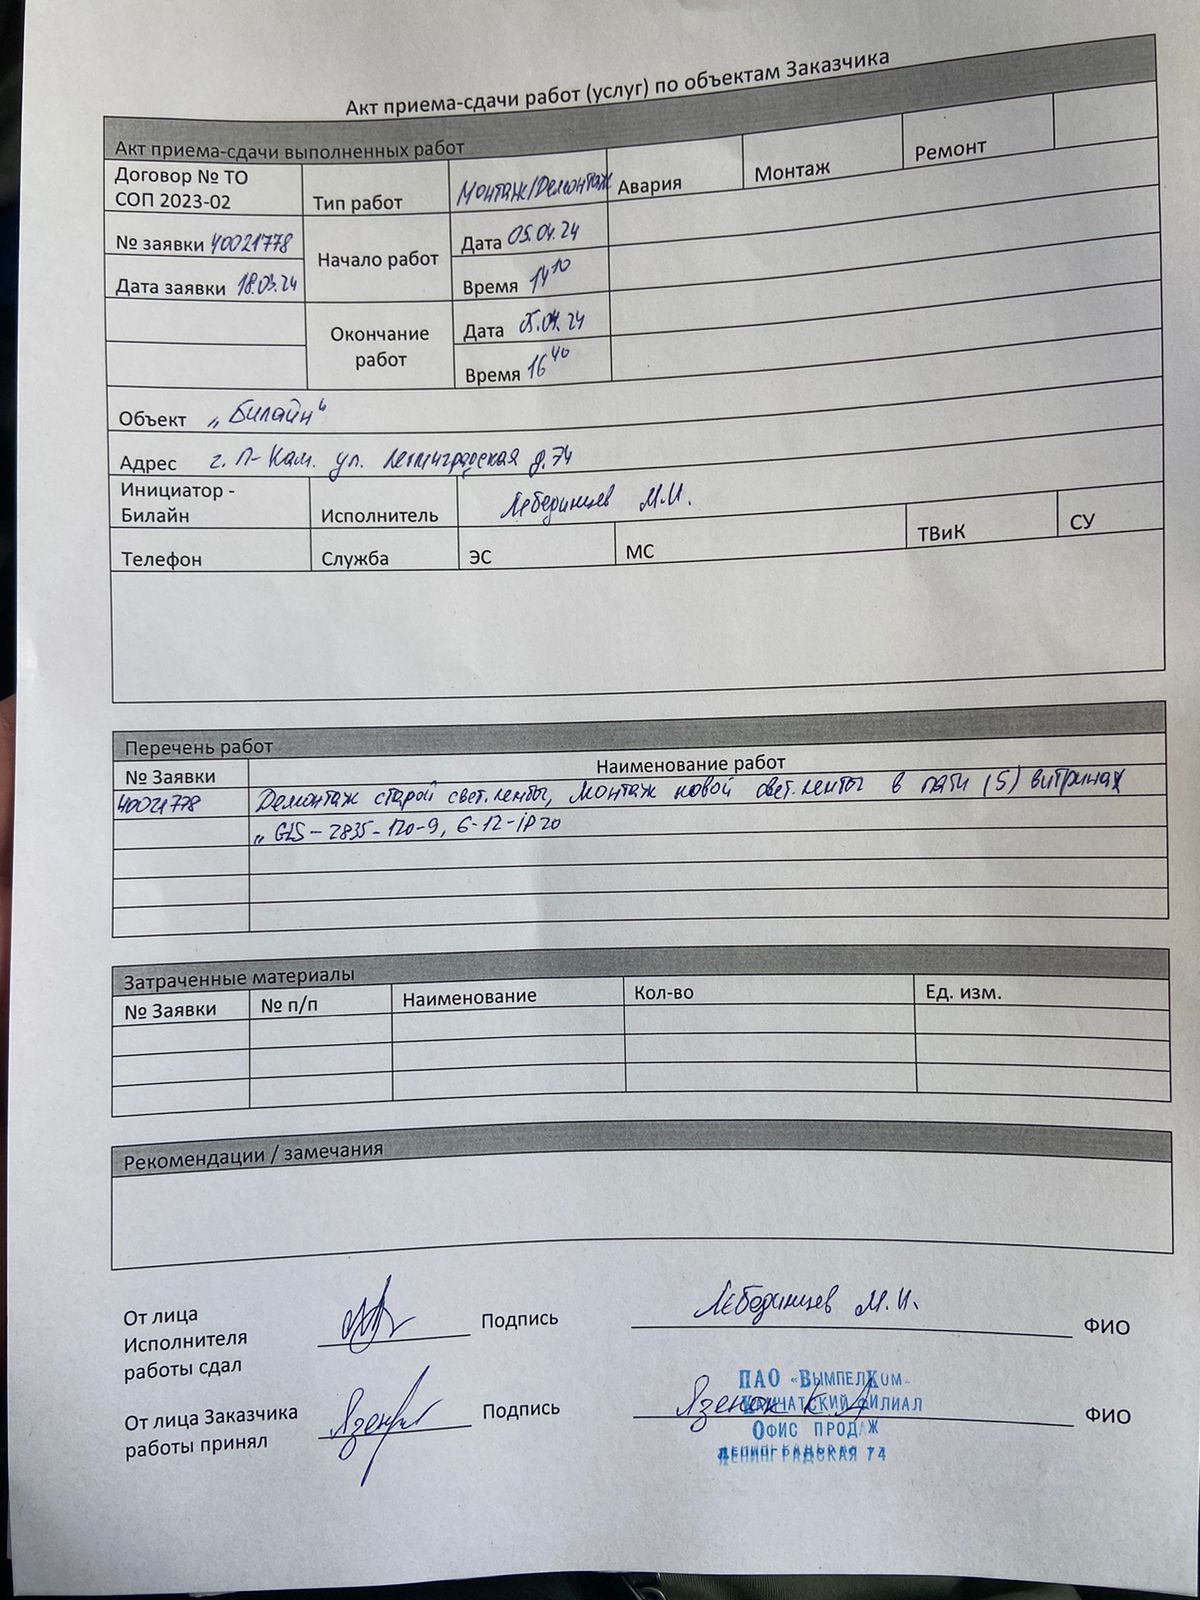 Акт приема-сдачи работ (услуг) по объектам Заказчика
Акт приема-сдачи выполненных работ
Договор № ТО СОП 2023-02
Тип работ
Монтаж/Демонтаж
Авария
Монтаж
Ремонт
№ заявки 40021778
Начало работ
Дата 05.04.24
Дата заявки 18.03.24
Время 14 10
Окончание работ
Дата 05.04.24
Время 16 40
Объект „Билайн"
Адрес г. П-Кам. ул. Ленинградская д.74
Инициатор - Билайн
Исполнитель
Лебединцев М.И.
Телефон
Служба
ЭС
МС
ТВиК
СУ
Перечень работ
№ Заявки
Наименование работ
40021778
Демонтаж старой свет.ленты, монтаж новой свет.ленты в пяти (5) витринах
„ GLS-2835-120-9, 6-12-ip20
Затраченные материалы
№ Заявки
№ п/п
Наименование
Кол-во
Ед. изм.
Рекомендации / замечания
От лица
Исполнителя
работы сдал
Подпись
Лебединцев М.И.
ФИО
От лица Заказчика
работы принял
Подпись
ФИО
ПАО «ВымпелКом-
филиал
Офис продаж
Ленинградская 74